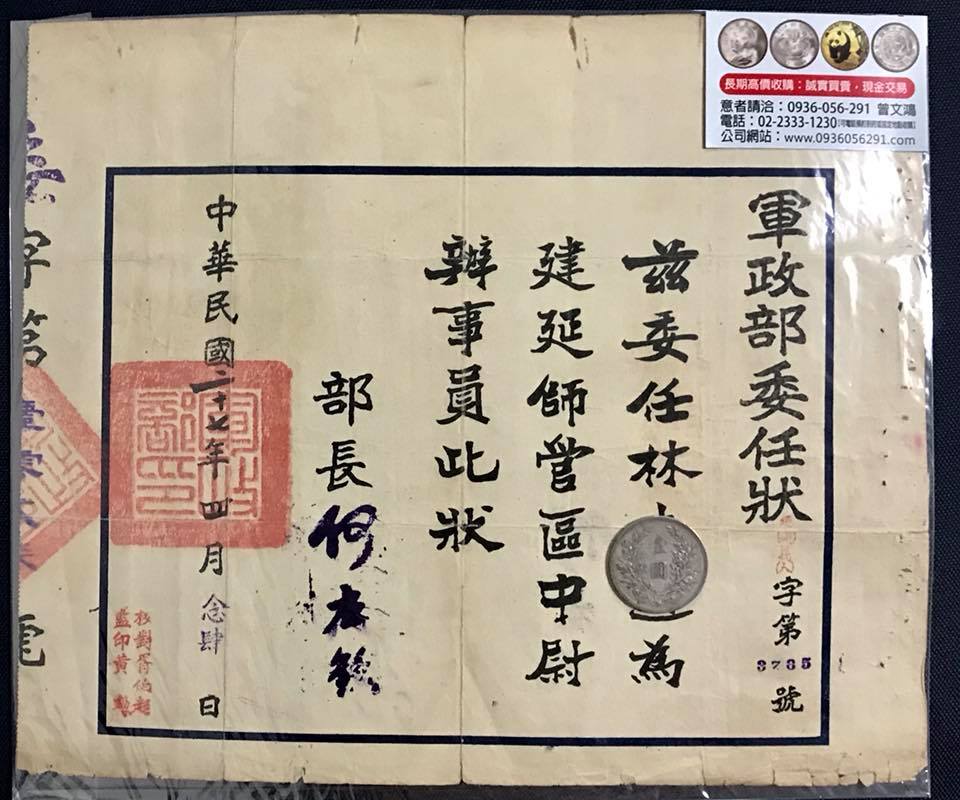 長期高價收購：誠實買賣，現金交易
意者請洽：0936-056-291 曾文鴻
電話：02-2333-1230
公司網站：www.0936056291.com
軍政部委任狀
字第3735號
茲委任林 為
建延師管區中尉
辦事員此狀
部長何應欽
中華民國二十七年四月念肆日
校對胥伯超
監印黃勳
字第
壹圓
軍政部印